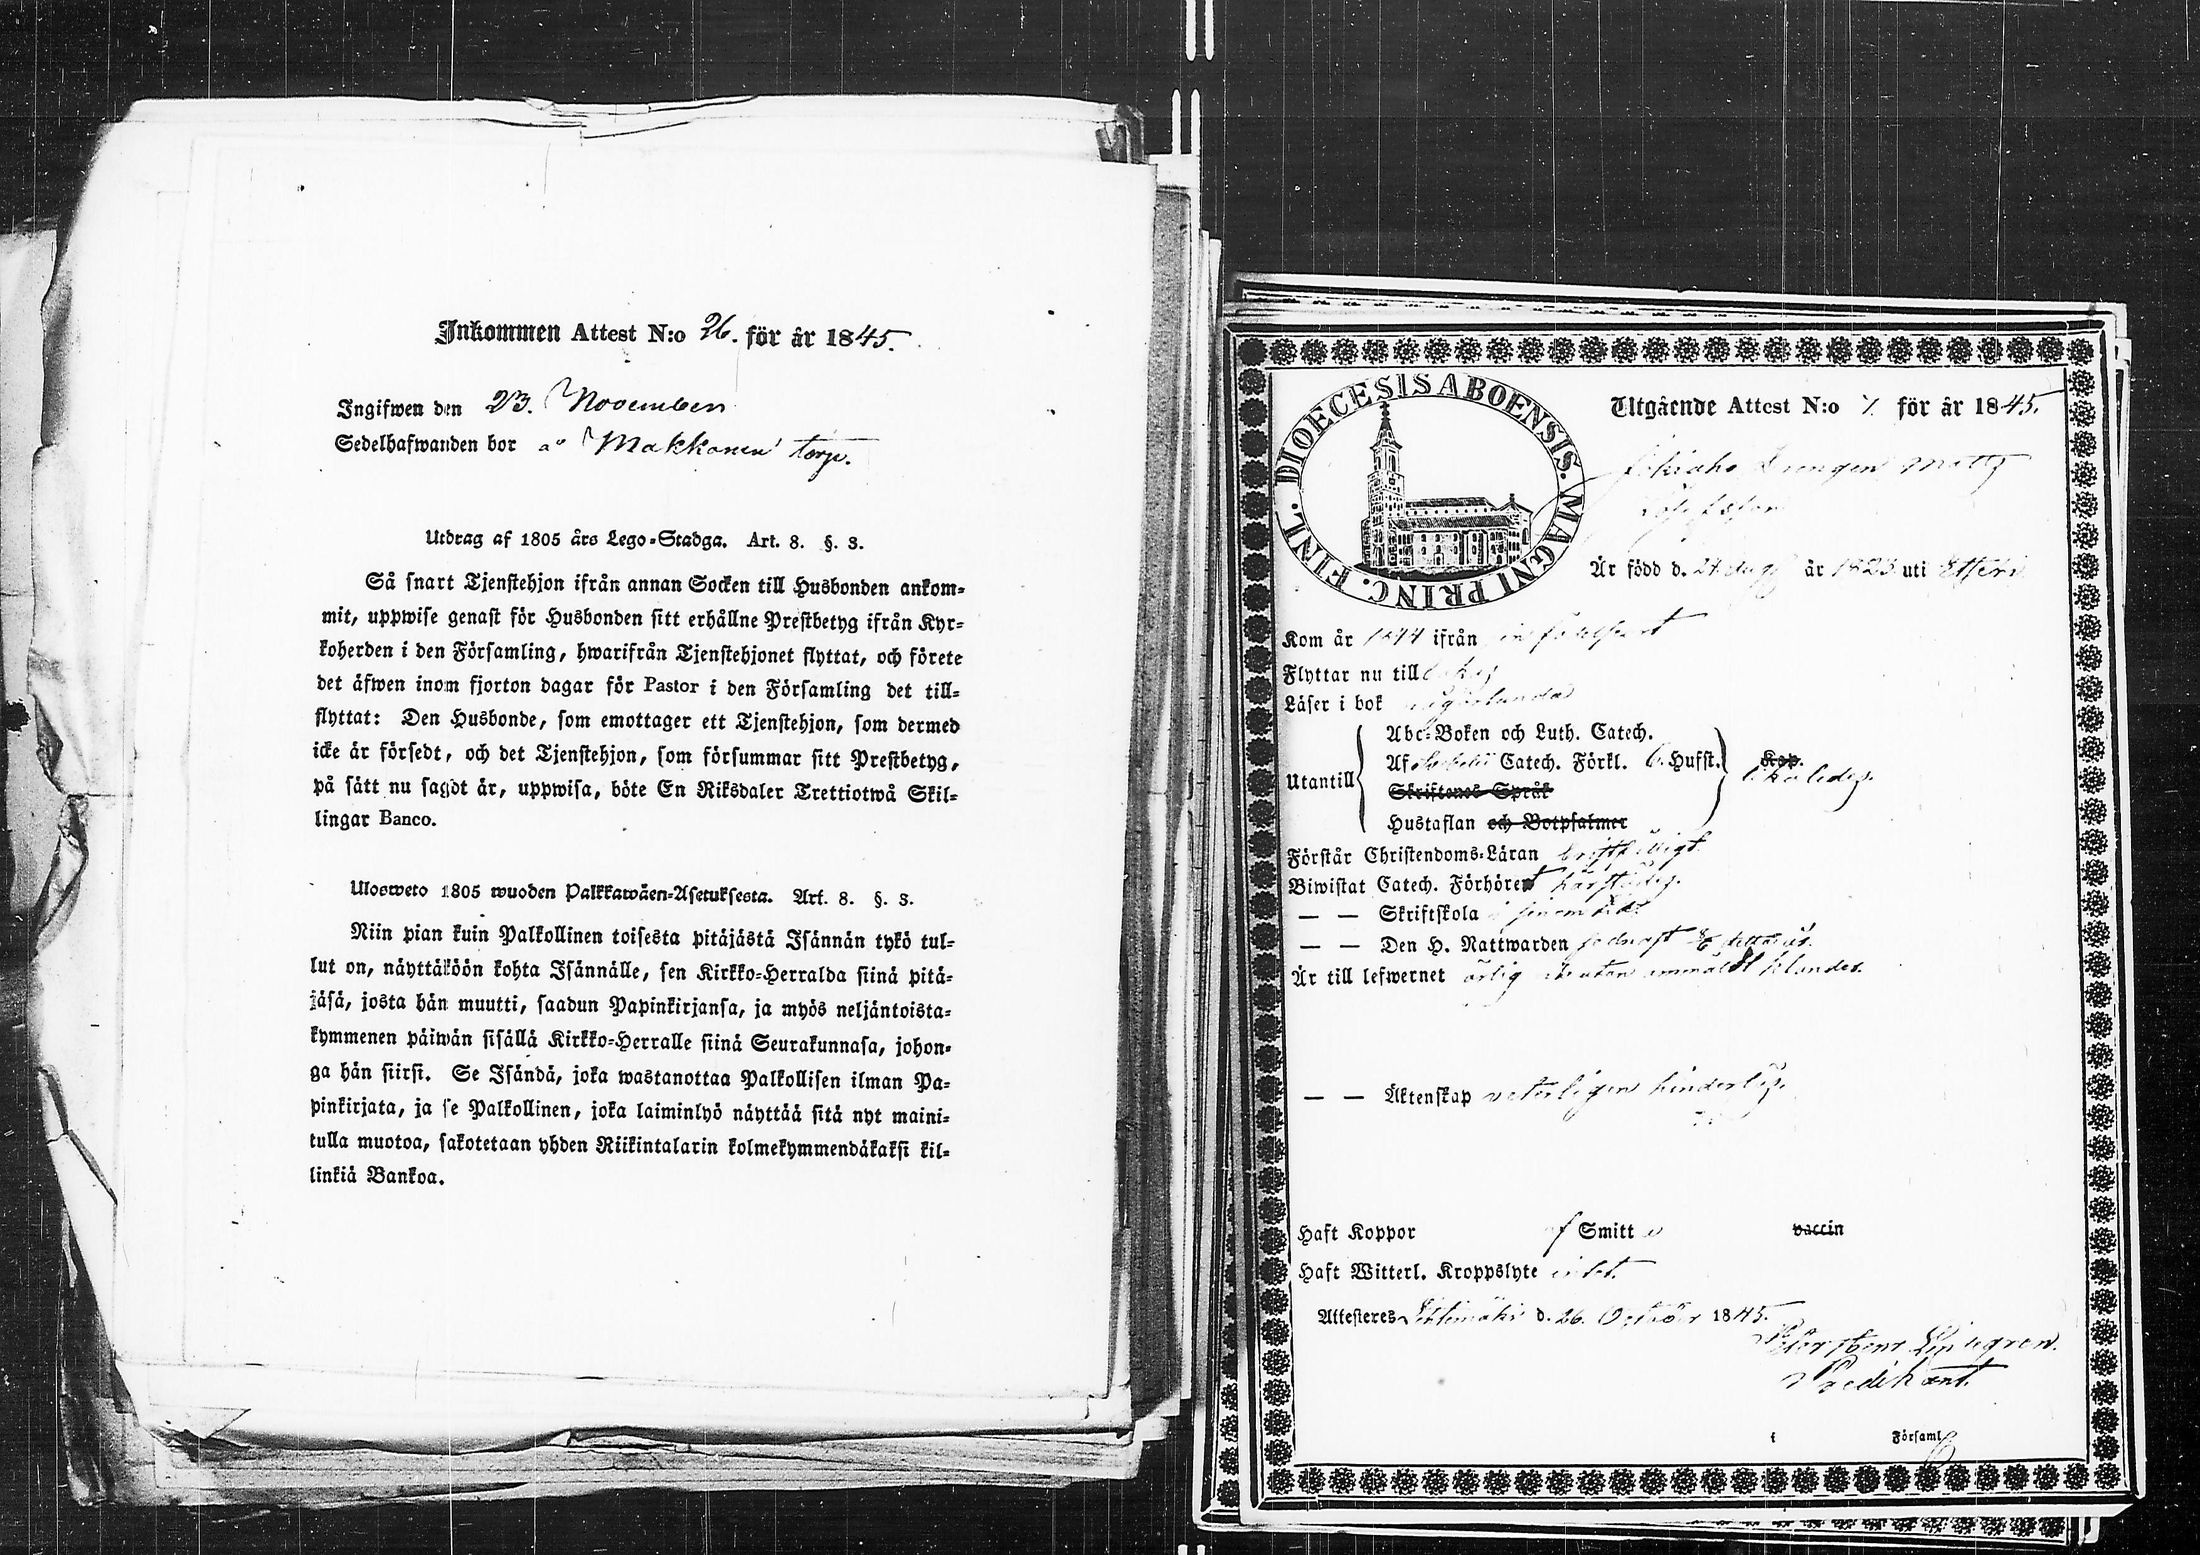 Inkommen Attest N:o 26. för år 1845.
Ingifwen den 23. November
Sedelhafwanden bor å Makkonen torp.
Utdrag af 1805 års Lego-Stadga. Art. 8. §. 3.
Så snart Tjenstehjon ifrån annan Socken till Husbonden ankom-
mit, uppwise genast för Husbonden sitt erhållne Prestbetyg ifrån Kyr-
koherden i den Församling, hwarifrån Tjenstehjonet flyttat, och förete
det äfwen inom fjorton dagar för Pastor i den Församling det till-
flyttat: Den Husbonde, som emottager ett Tjenstehjon, som dermed
icke är försedt, och det Tjenstehjon, som försummar sitt Prestbetyg,
på sätt nu sagdt är, uppwisa, böte En Riksdaler Trettiotwå Skil-
lingar Banco.
Ulosweto 1805 wuoden Palkkawäen-Asetuksesta. Art. 8. §. 3.
Niin pian kuin Palkollinen toisesta pitäjästä Isännän tykö tul-
lut on, näyttäköön kohta Isännälle, sen Kirkko-Herralda siinä pitä-
jäsä, josta hän muutti, saadun Papinkirjansa, ja myös neljäntoista-
kymmenen päiwän sisällä Kirkko-Herralle siinä Seurakunnasa, johon-
ga hän siirsi. Se Isändä, joka wastanottaa Palkollisen ilman Pa-
pinkirjata, ja se Palkollinen, joka laiminlyö näyttää sitä nyt maini-
tulla muotoa, sakotetaan yhden Riikintalarin kolmekymmendäkaksi kil-
linkiä Bankoa.
DIOECESIS ABOENSIS. MAGNI PRINC. FINL.
Utgående Attest N:o 7. för år 1845.
Drengen Matts
År född d. 21 Aug är 1823 uti Etseri
Kom år 1844 ifrån
Flyttar nu till
Läser i bok
Utantill
Abc-Boken och Luth. Catech.
Af Catech. Förkl. 6. Husst.
Skriftenes Språk
Hustaflan och Botpsalmer
Kop.
Förstår Christendoms-Läran
Biwistat Catech. Förhöret
— — Skriftskola i
— — Den H. Nattwarden sednast
Är till lefwernet ärlig utan anmäldt klander.
— — Äktenskap veterligen hinderlig.
Haft Koppor af Smitt vaccin
Haft Witterl. Kroppslyte intet.
Attesteres d. 26. October 1845.
Predikant
i Församl.